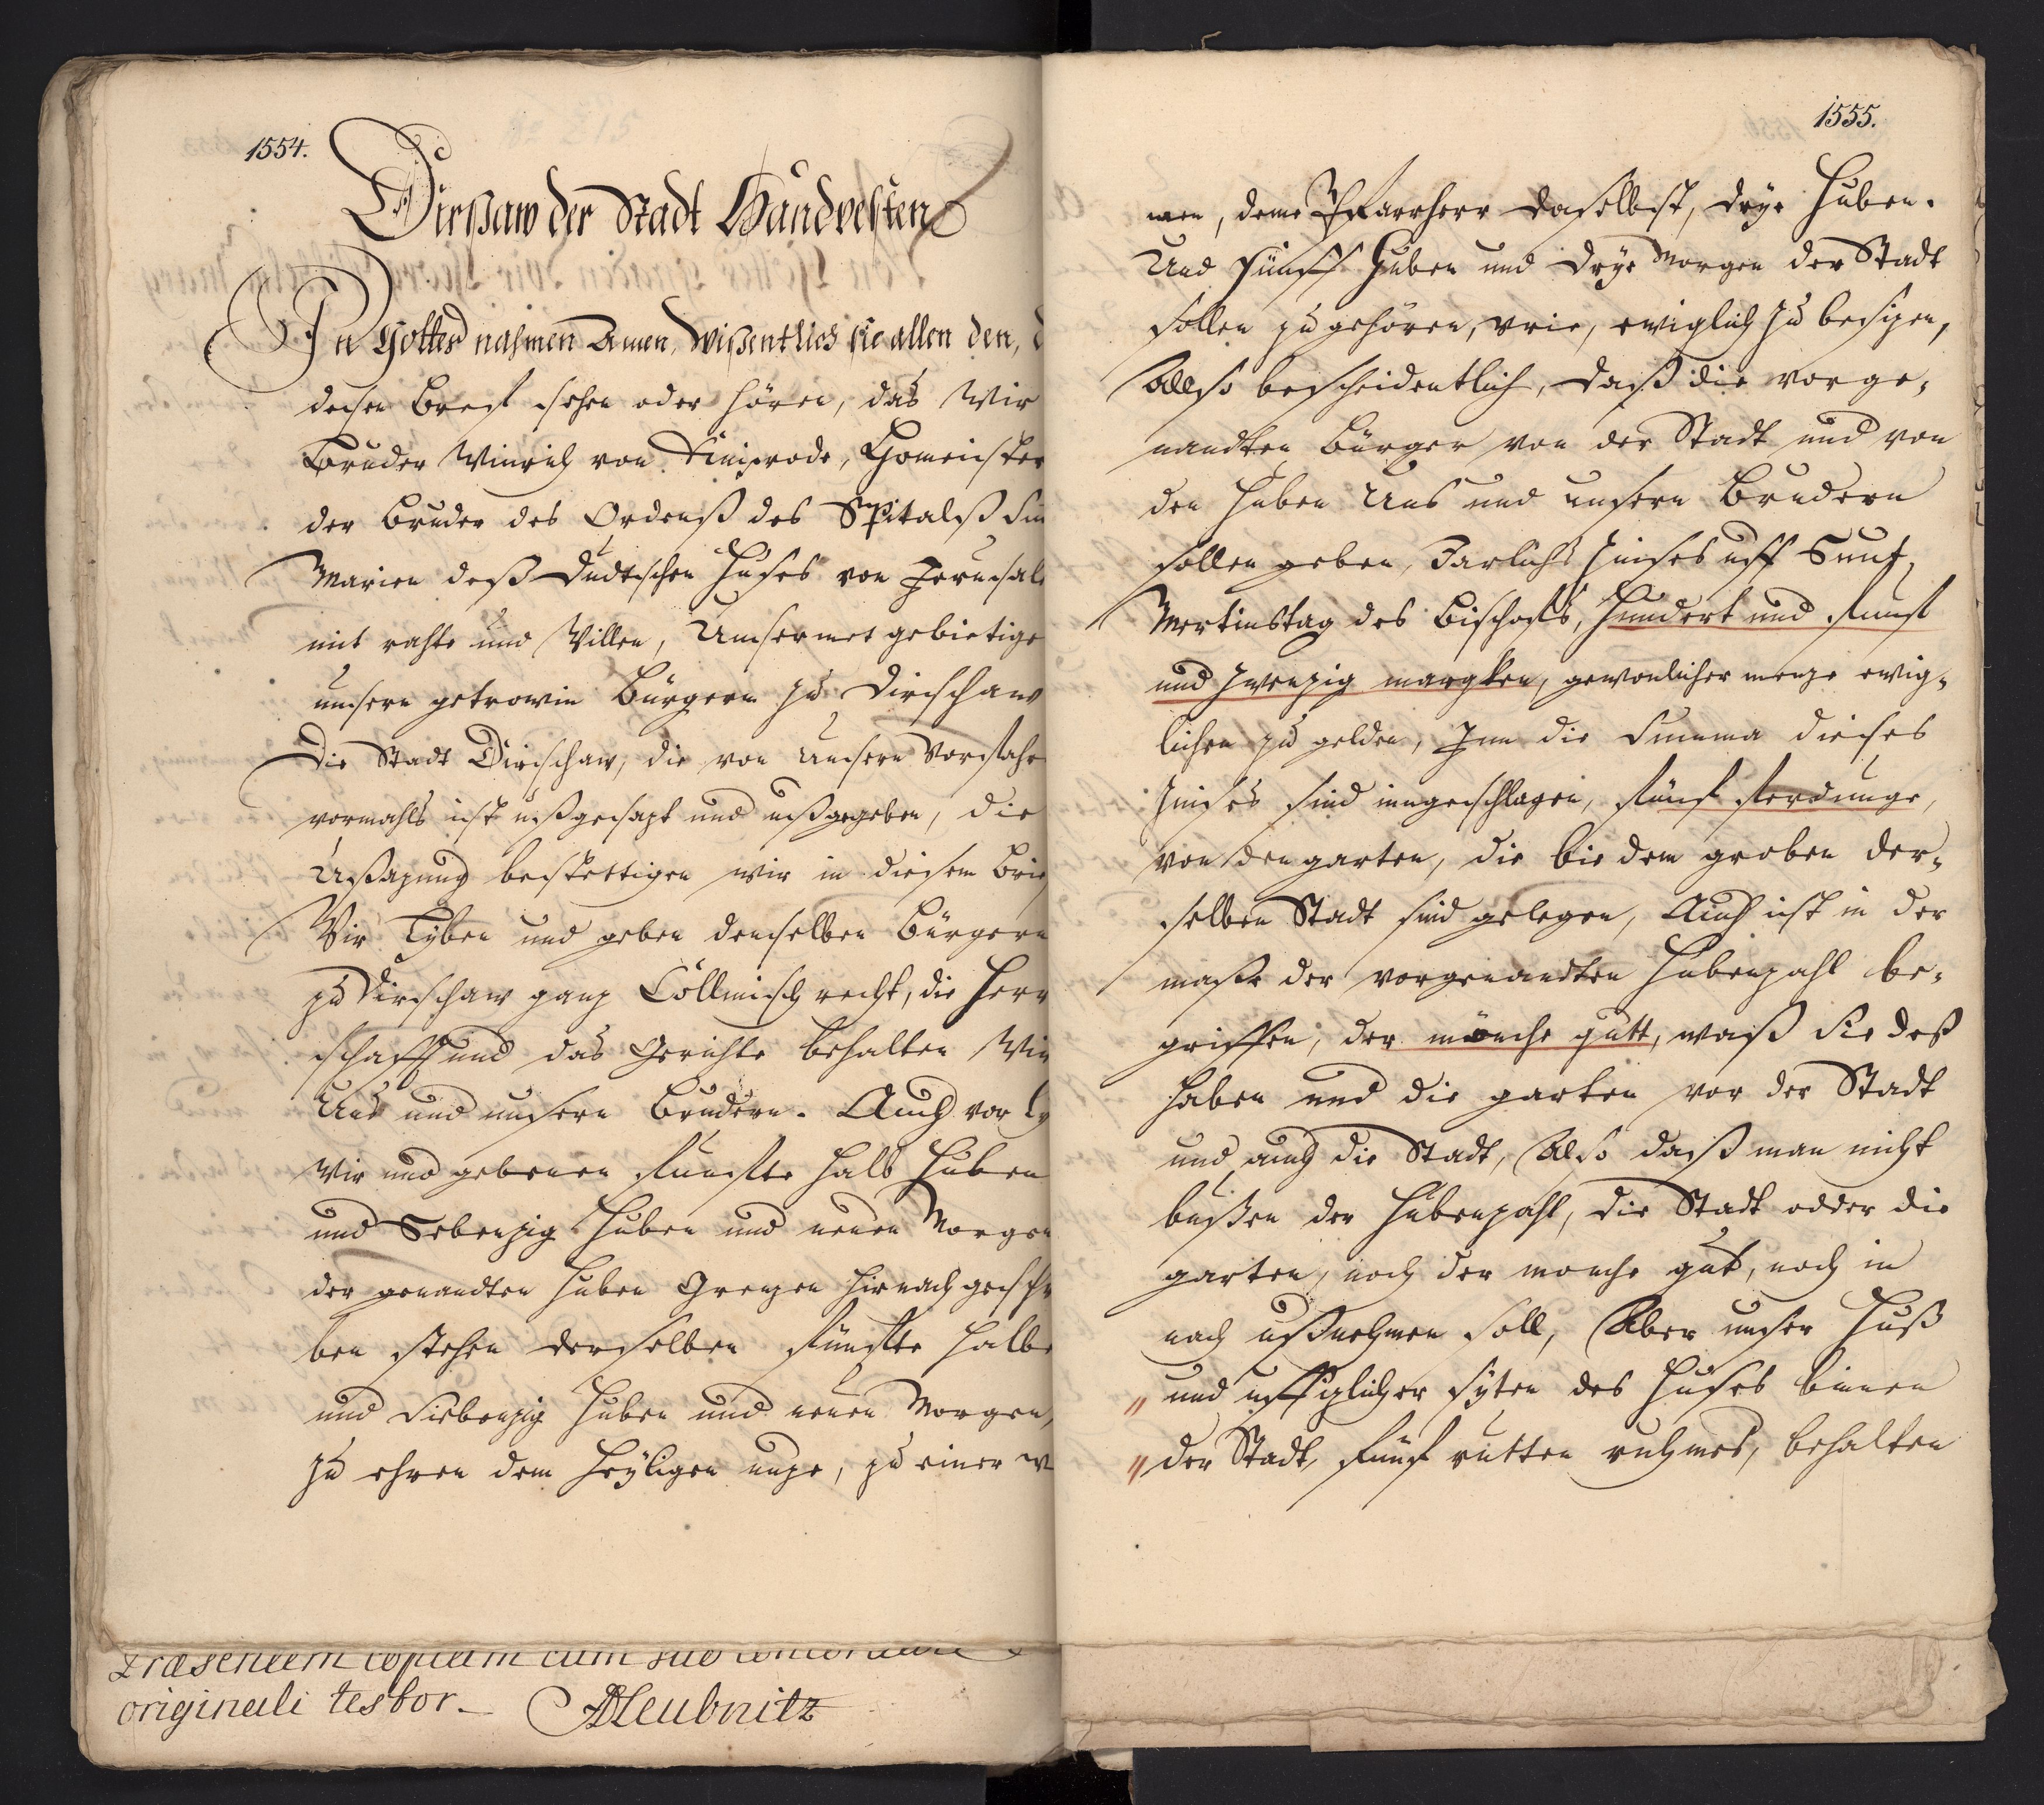 1554.
Dirßaw der Stadt Handvesten
In Gottes nahmen Amen, Wißentlich sie allen den,
desen Breif sehen oder hören, das Wir
Bruder Winrich von Kniprode, Homeister
der Bruder des Ordenß des Spitalß
Marien deß Dudeschen Huses von
mit rahte und Willen, Unser met gebietige
unsern getrowin Bürgern zu Dirschaw
Die Stadt Dirschaw, die von Unsern Vorfahr
vormahls ist ußgesazt und ußgegeben, die
Ußazung bestettigen wir in diesem
Wir Lyben und geben denselben Bürgern
zu Dirschaw ganz Cöllmisch recht, die Herr
schafft und das Gerichte behalten Wir
Uns und unsern Brudern. Auch vor
Wir und gebenen funfte halb Huben
und Sebenzig Huben und neuen Morgen
der genandten Huben Grenzen hirnach
ben stehen derselben fünffte halbe
und Siebenzig Huben und neuen Morgen,
zu ehren dem Heyligen unge, zu einer
Præsentem copiam cum suo
originali testor. Heubnitz
1555.
men, deme Pfarrherr daselbst, drye Huben.
Und fünff Huben und drye Morgen der Stadt
sollen zu gehören, vrie, ewiglich zu besizen,
Allso bescheidentlich, daß die vorge,
nandten Bürger von der Stadt und von
den Huben Uns und unsern Brudern
sollen geben, Jarlichs Zinses uff Sunt,
Mertinstag des Bischofs, Hundert und funf
und zwenzig margken, gewonlicher menze ewig-
lichen zu gelden, Inn die Summa dieses
Zinses sind inngeschlagen, fünf ferdunge,
von den garten, die bie dem groben der-
selben Stadt sind gelegen, Auch ist in der
maße der vorgenandten Hubenzahl be-
griffen, der mönche gutt, waß Sie deß
haben und die garten vor der Stadt
und auch die Stadt, Also daß man nicht
bußen der Hubenzahl, die Stadt odder die
garten, noch der monche gut, noch in
nach ußnehmen soll, Aber unser Huß
und uff iglicher syten des Huses binnen
der Stadt, fünf rutten ruhmes, behalten